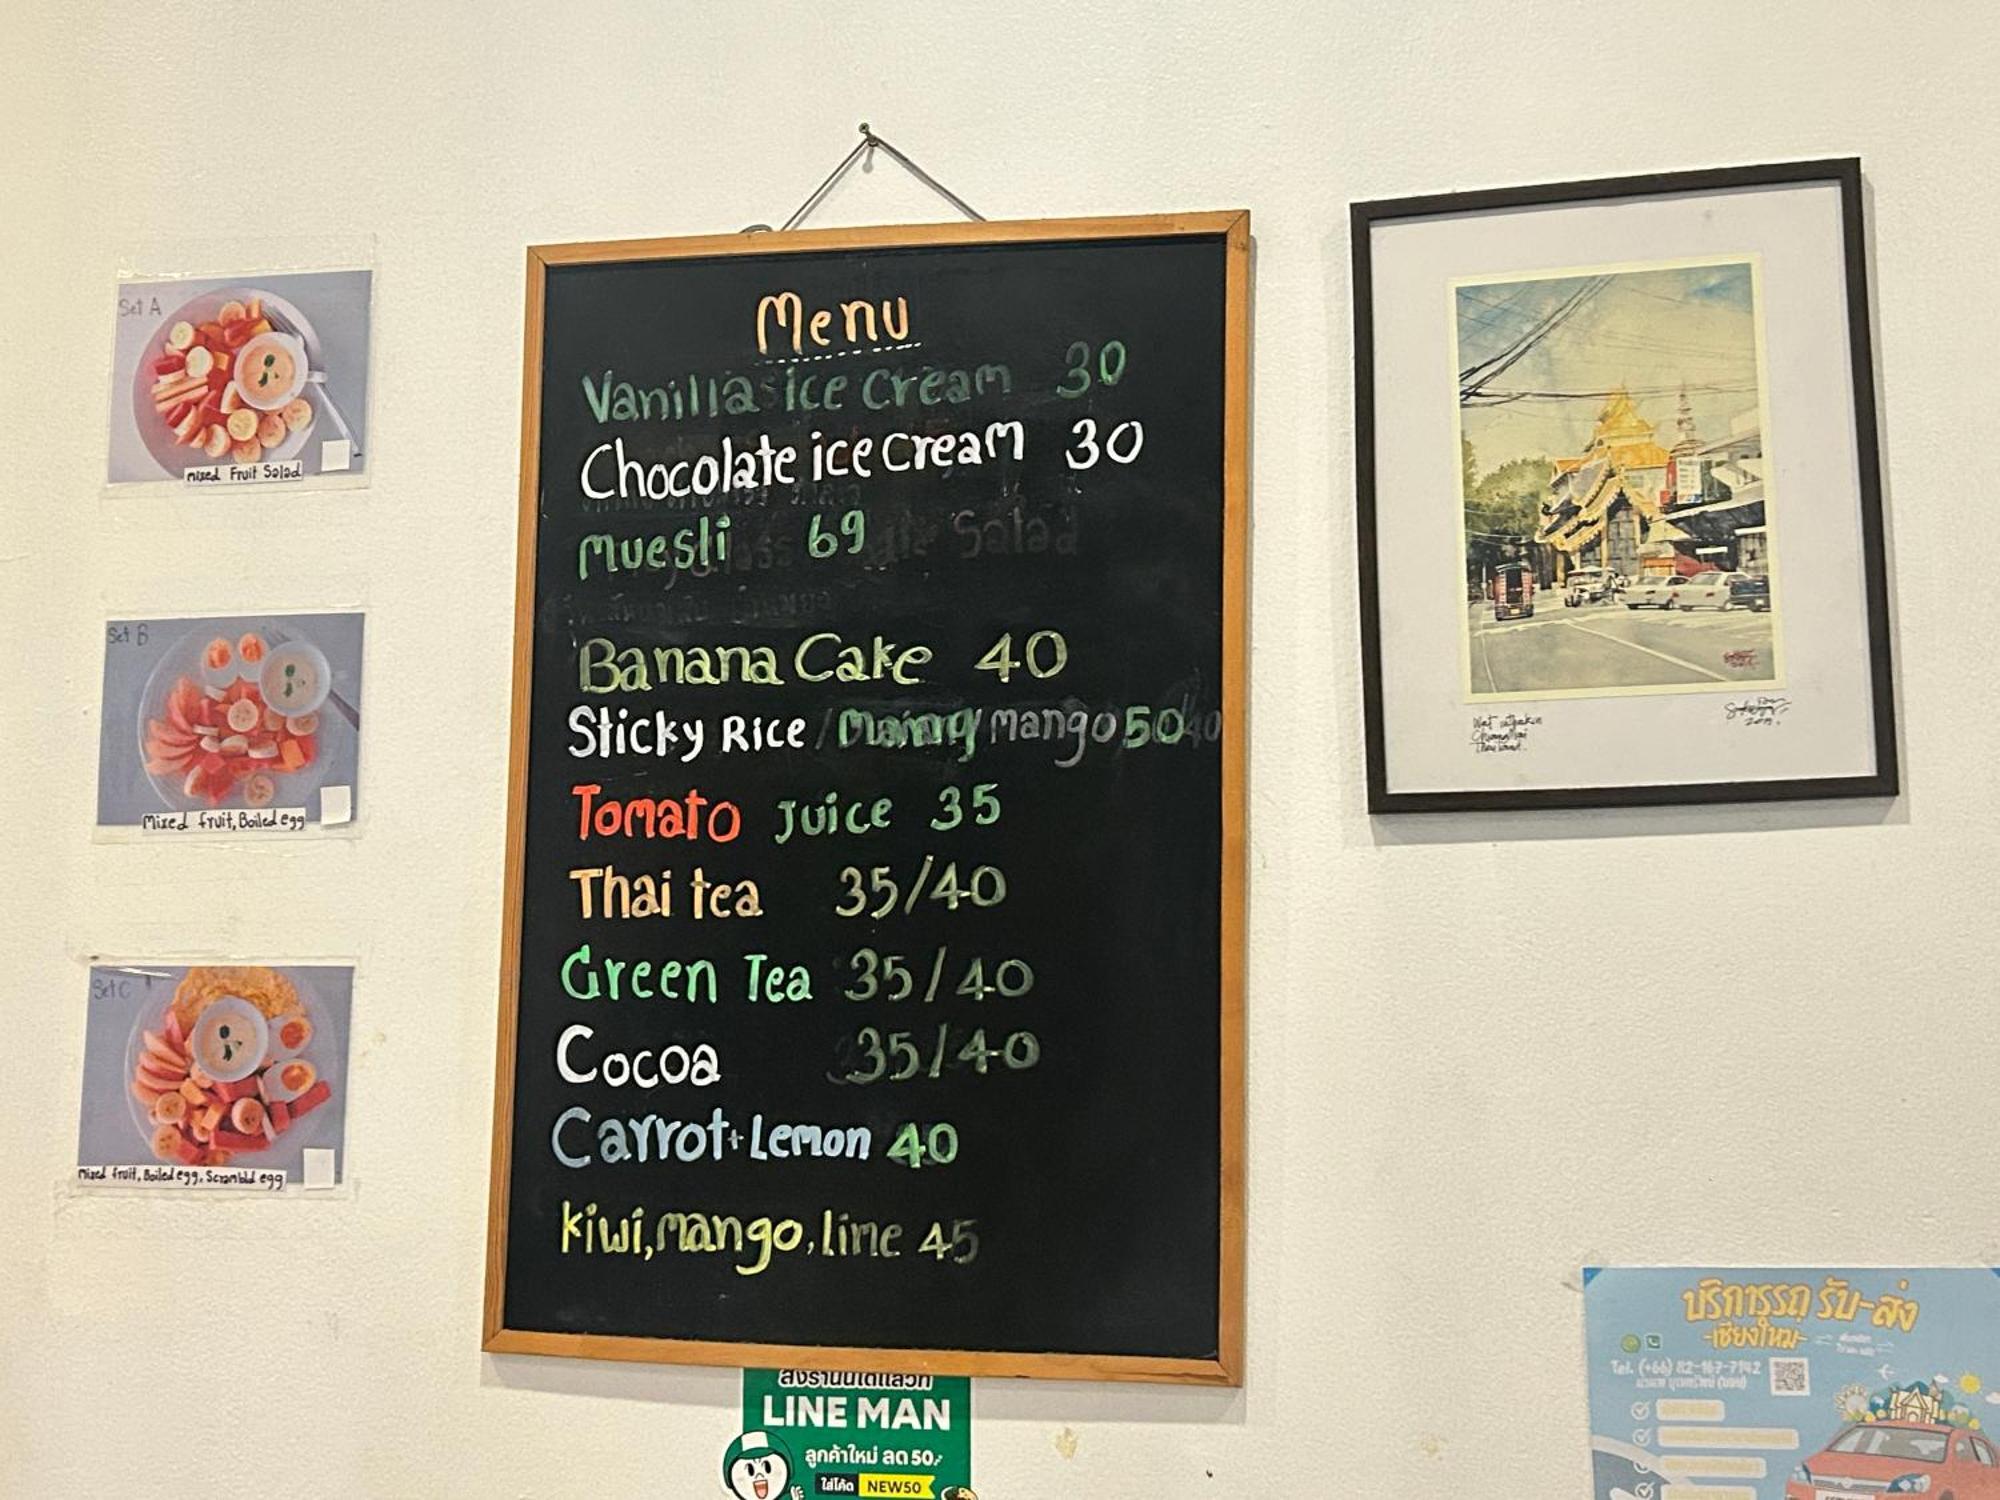 Set A
mixed Fruit Salad
Set B
Mixed fruit, Boiled egg
Set C
Mixed fruit, Boiled egg, Scrambld egg
Menu
Vanilla ice cream 30
Chocolate ice cream 30
Muesli 69
Salad
Banana Cake 40
Sticky Rice mango 50
Tomato Juice 35
Thai tea 35/40
Green Tea 35/40
Cocoa 35/40
Carrot+Lemon 40
kiwi, mango, lime 45
LINE MAN
ลูกค้าใหม่ ลด 50.-
ใส่โค้ด NEW50
Thailand.
2019.
บริการรถ รับ-ส่ง
-เชียงใหม่-
Tel. (+66) 82-167-7142